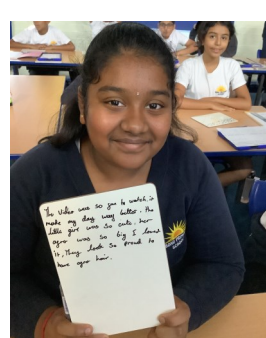 The video was so fun to watch, it
make my day way better. The
little girl was so cute. Her
afro was so big I loved
it. They look so proud to
have afro hair.